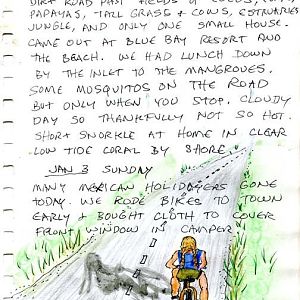 DIRT ROAD PAST FIELDS OF COCOS,
PAPAYAS, TALL GRASS & COWS, ESTUARIES
JUNGLE, AND ONLY ONE SMALL HOUSE.
CAME OUT AT BLUE BAY RESORT AND
THE BEACH. WE HAD LUNCH DOWN
BY THE INLET TO THE MANGROVES.
SOME MOSQUITOS ON THE ROAD
BUT ONLY WHEN YOU STOP. CLOUDY
DAY SO THANKFULLY NOT SO HOT.
SHORT SNORKLE AT HOME IN CLEAR
LOW TIDE CORAL BY SHORE.
JAN 3 SUNDAY
MANY MEXICAN HOLIDAYERS GONE
TODAY. WE RODE BIKES TO TOWN
EARLY & BOUGHT CLOTH TO COVER
FRONT WINDOW IN CAMPER